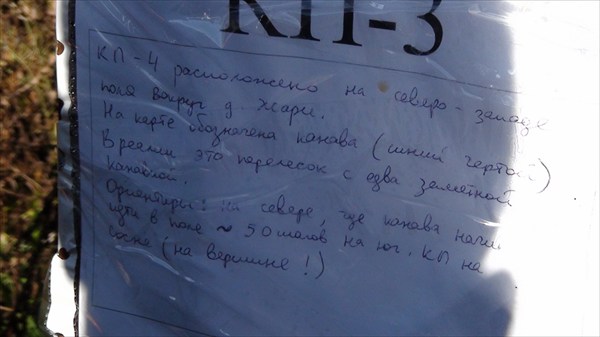 КП-3
КП-4 расположено на северо-западе
поля вокруг д. Жари.
На карте обозначена канава (синей чертой)
В реалии это перелесок с едва заметной
канавкой.
Ориентиры: на севере, где канава
идти в поле ~ 50 шагов на юг. КП на
сосне (на вершине!)